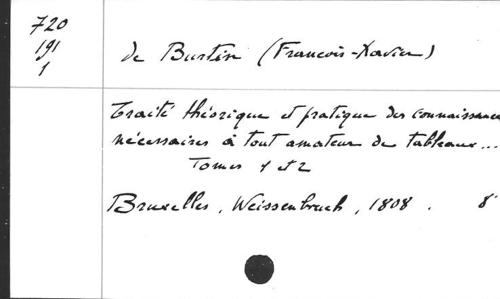 720
191
1
de Burtin (François-Xavier)
Traité théorique et pratique des connaissances
nécessaires à tout amateur de tableaux...
Tomes 1 et 2
Bruxelles, Weissenbruch, 1808. 8°